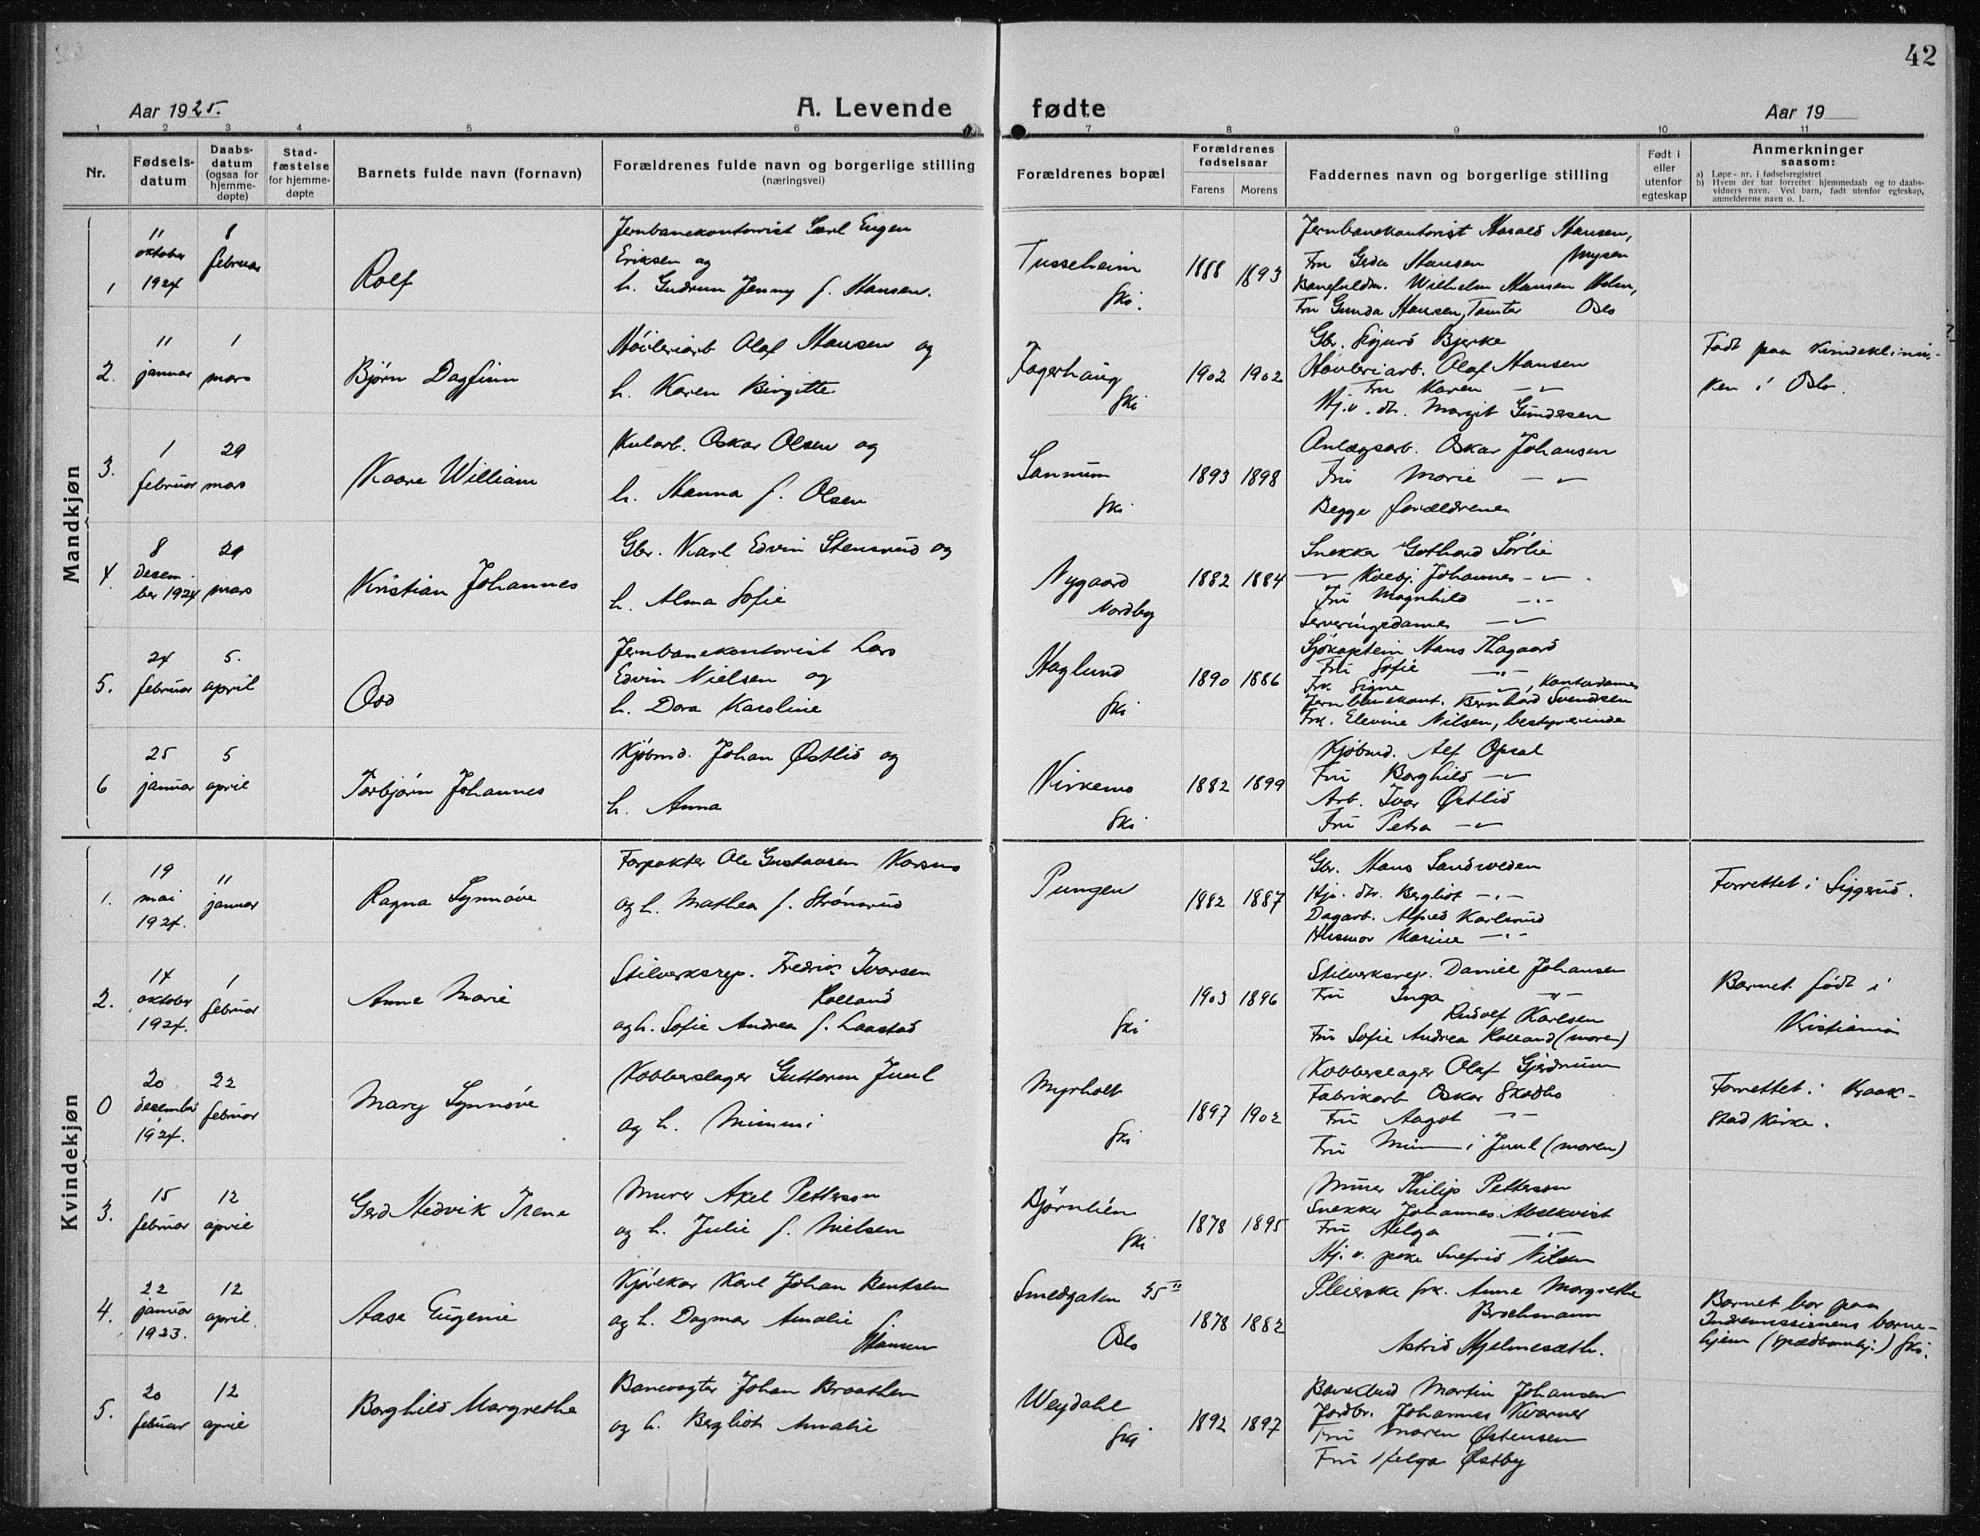 42
Aar 1925.
A. Levende
fødte
Aar 19
1 2 3 4 5 6 7 8 9 10 11
Nr.
Fødsels-
datum
Daabs-
datum
(ogsaa for
hjemme-
døpte)
Stad-
fæstelse
for hjemme-
døpte
Barnets fulde navn (fornavn)
Forældrenes fulde navn og borgerlige stilling
(næringsvei)
Forældrenes bopæl
Forældrenes
fødselsaar
Farens
Morens
Faddernes navn og borgerlige stilling
Født i
eller
utenfor
egteskap
Anmerkninger
saasom:
a) Løpe-nr. i fødselsregistret
b) Hvem der har forrettet hjemmedaab og to daabs-
vidners navn. Ved barn, født utenfor egteskap,
anmelderens navn o. l.
Mandkjøn
1
11
oktober
1924
8
februar
Rolf
Jernbanekontorist Carl Eugen
Eriksen og
h. Gudrun Jenny f. Hansen.
Tusseheim
Ski.
1888 1893
Jernbanekontorist Harald Hansen,
Fru Gerda Hansen Mysen
Banefuldm. Wilhelm Hansen Holm,
Fru Gunda Hansen, Tomter Oslo
2.
11
januar
1
mars
Bjørn Dagfinn
Høvleriarb Olaf Hansen og
h. Karen Birgitte
Fagerhaug
Ski
1902 1902
Gbr. Sigurd Bjerke
Høvleriarb. Olaf Hansen
Fru Karen
Hj.v. dtr. Margit Gundesen
Født paa Kvindeklinik-
ken i Oslo.
3.
1
februar
29
mars
Kaare William
Kularb. Oskar Olsen og
h. Hanna f. Olsen
Sannum
Ski
1893 1898
Anlægsarb. Oskar Johansen
Fru Marie
Begge forældrene
4.
8
desem-
ber 1924
29
mars
Kristian Johannes
Gbr. Karl Edvin Stensrud og
h. Alma Sofie
Nygaard
Nordby
1882 1884
Snekker Gothard Sørlie
Johannes
Fru Magnhild
Serveringsdame
5.
24
februar
5.
april
Odd
Jernbanekontorist Lars
Edvin Nielsen og
h. Dora Karoline
Haglund
Ski
1890 1886
Sjökaptein Hans Thagaard
Fru Sofie
Frk Signe Kontordame
Jernbanekont. Bernhard Svendsen
Frk. Elevine Nilsen, bestyrerinde
6
25
januar
5
april
Torbjörn Johannes
Kjöbmd. Johan Østlid og
h. Anna
Kirkemo
Ski
1882 1899
Kjöbmd. Alf Opsal
Fru Borghild
Arb. Ivar Østlid
Fru Petra
Kvindekjøn
1.
19
mai
1924.
11
januar
Ragna Synnöve
Forpakter Ole Gustavsen Korsmo
og h. Mathea f. Strömsrud
Pungen
1882 1887
Gbr. Hans Sandsveden
Hj. dtr. Bergliot
Dagarb. Alfred Karlsrud
Husmor Karine
Forrettet i Siggerud.
2.
14
oktober
1924.
1
februar
Anne Marie
Stilverksrep. Fredrik Ivarsen
Rolland
og h. Sofie Andrea f. Laastad
Ski
1903 1896
Stilverksrep. Daniel Johansen
Fru Inga
Rudolf Karlsen
Fru Sofie Andrea Rolland (moren)
Barnet født i
Kristiania
0
20
desember
1924.
22
februar
Mary Synnöve
Kobberslager Guttorm Juul
og h. Mimmi
Myrholt
Ski
1897 1902
Kobberslager Olaf Gjerdrum
Fabrikarb Oskar Skodbo
Fru Aagot
Fru Mimmi Juul (moren)
Forrettet i Kraak-
stad Kirke.
3.
15
februar
12
april
Gerd Hedvik Irene
Murer Axel Petterson
og h. Julie f. Nielsen
Björnlien
Ski
1878 1895
Murer Philip Petterson
Snekker Johannes Abelkvist
Fru Helga
Hj. v. pike Snefrid Nilsen
4.
22
januar
1923.
12
april
Aase Eugenie
Kjörekar Karl Johan Bentsen
og h. Dagmar Amalie
Hansen
Smedgaten 35 II
Oslo
1878 1882
Pleierske frk. Anne Margrethe
Brochmann
Astrid Hjelmesæth.
Barnet bor paa
Indremissionens barne-
hjem (spædbarnhj.) Ski.
5.
20
februar
12
april
Borghild Margrethe
Banevogter Johan Braathen
og h. Bergliot Amalie
Weydahl
Ski
1892 1897
Martin Johansen
Jordbr. Johannes Kværner
Fru Maren Østensen
Fru Helga Østby